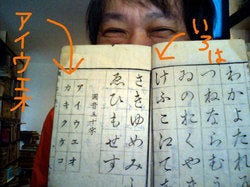 いろは
アイウエオ
わかよたれそ
つねならむ
ゐのおくやま
けふこえて
さきゆめみし
ゑひもせす
五十字
アイウエオ
カキクケコ